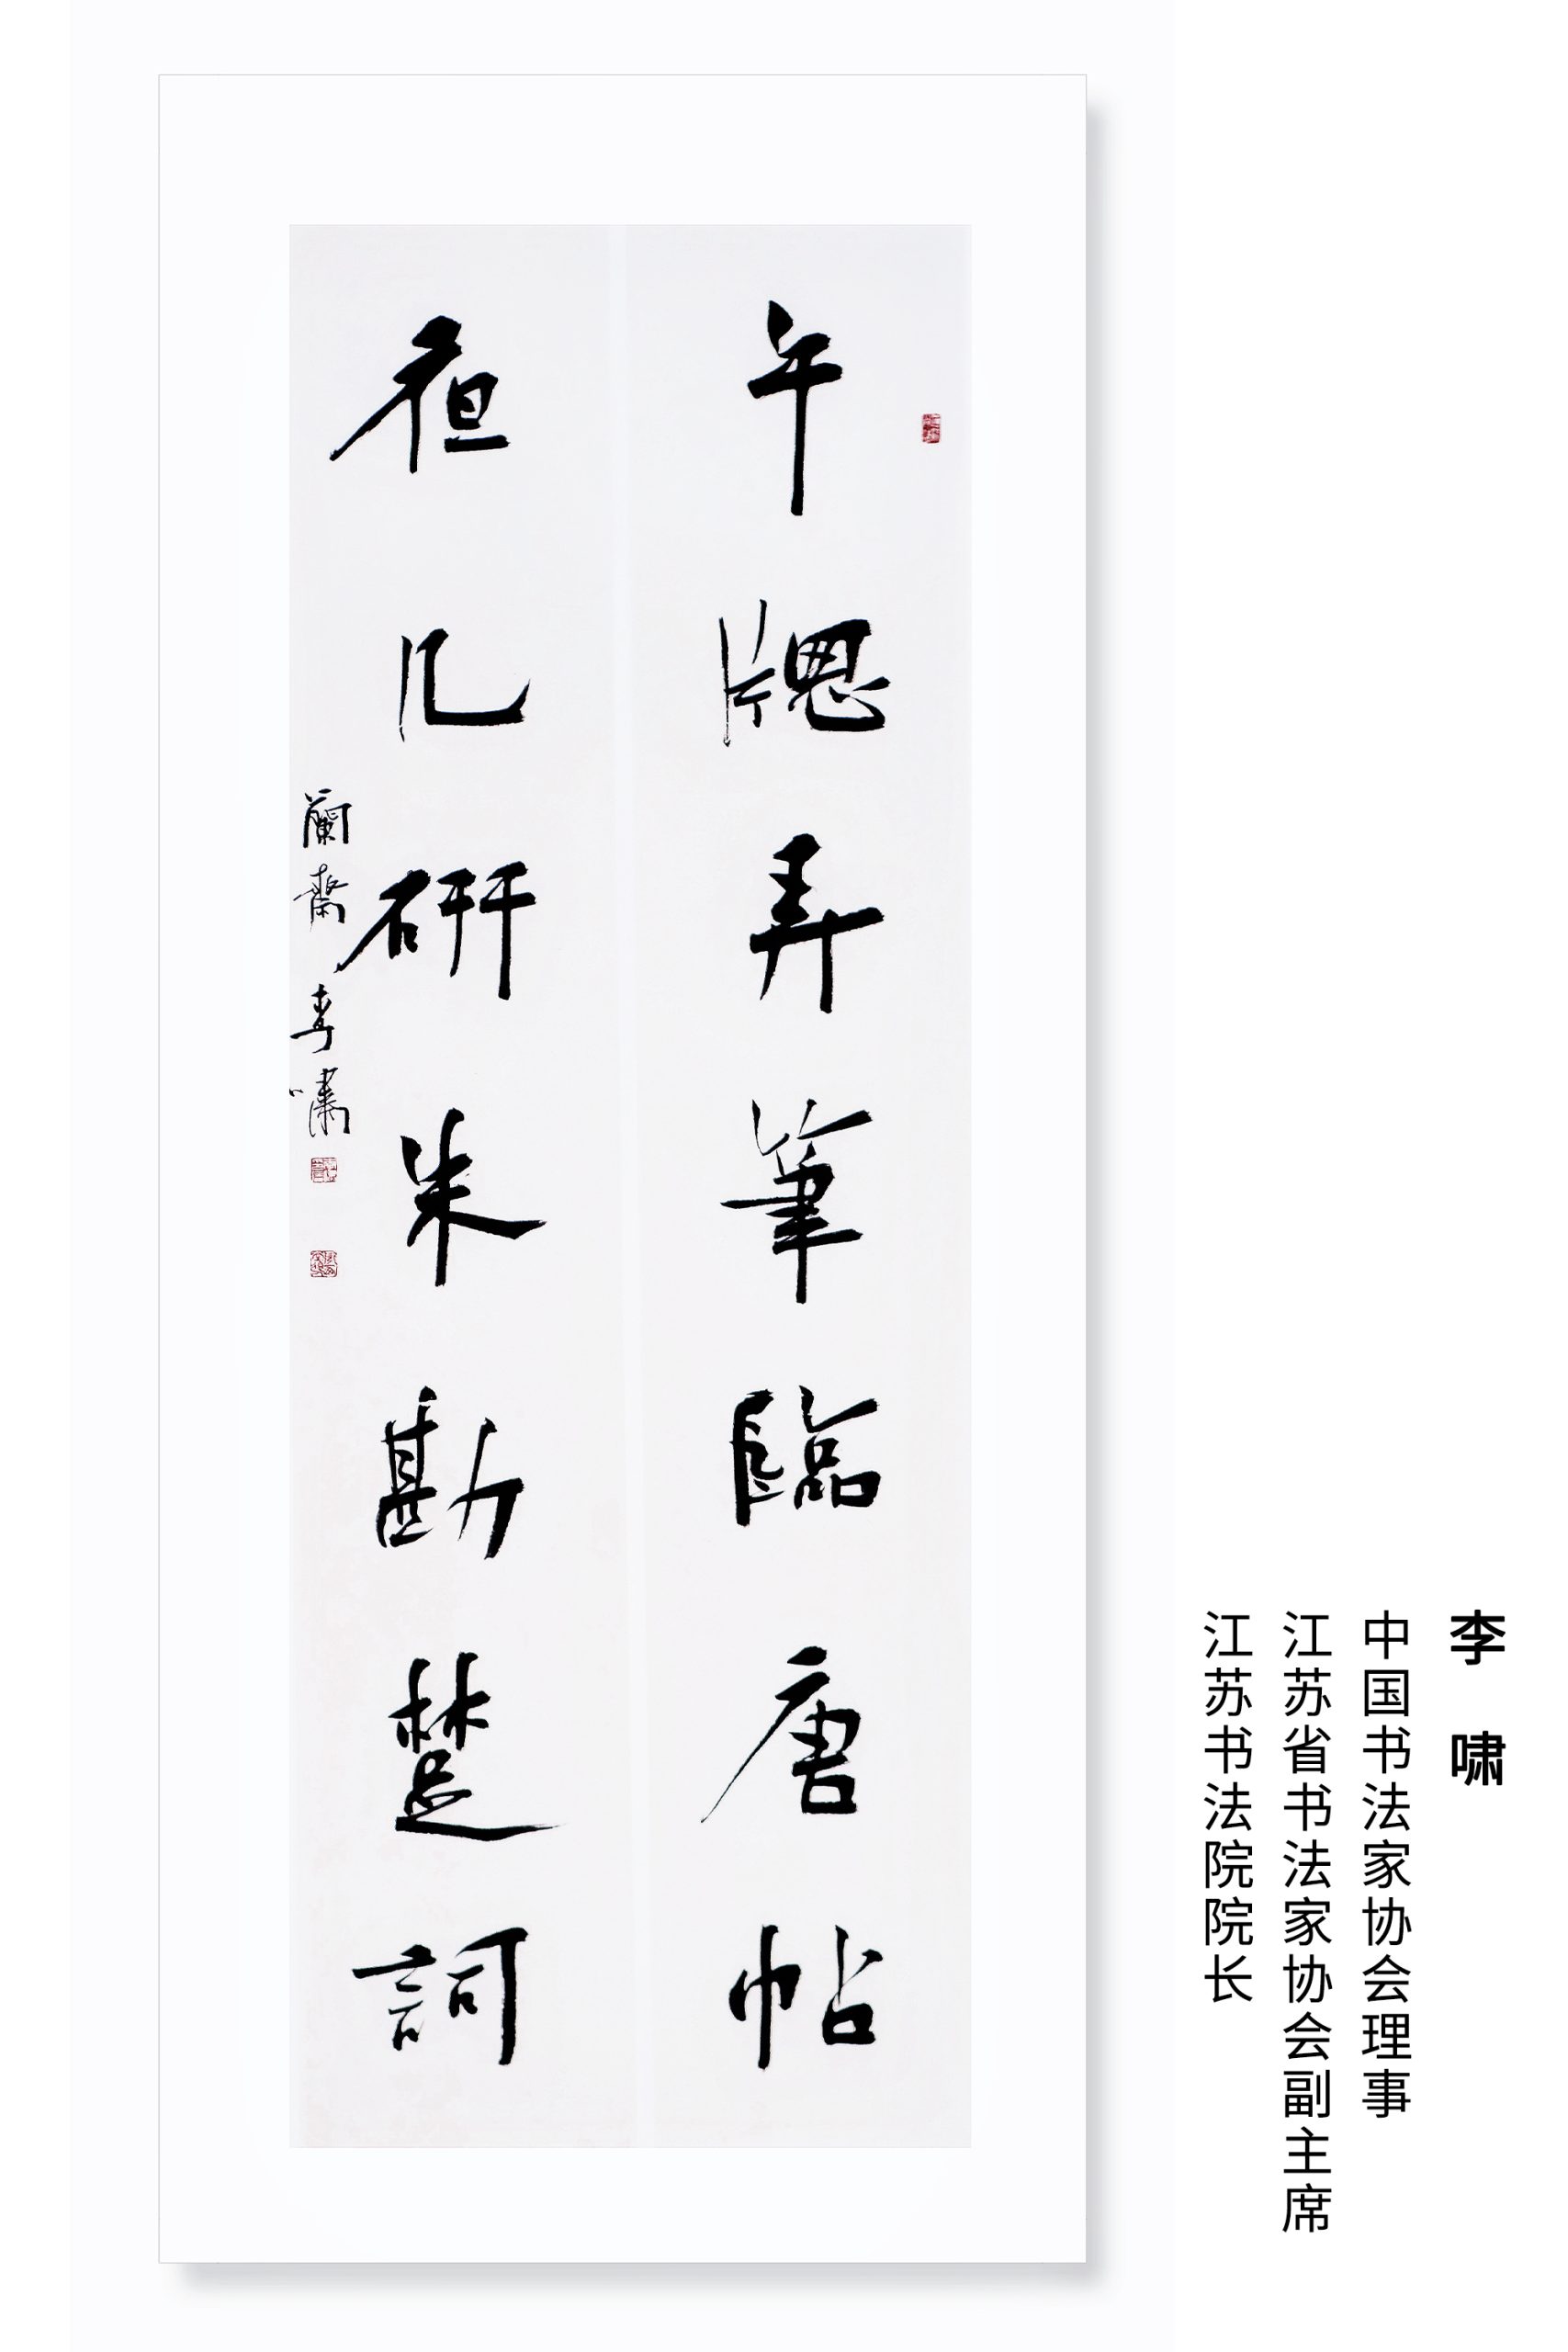 午牕弄筆臨唐帖
夜几研朱勘楚詞
蘭齋李嘯
李啸
中国书法家协会理事
江苏省书法家协会副主席
江苏书法院院长